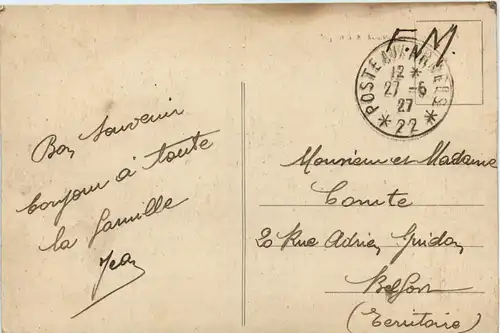 F.M.
POSTE AUX ARMEES
12 *
27 - 6
27
* 22 *
Bon Souvenir
bonjour à toute
la famille
Jean
Monsieur et Madame
Comte
20 Rue Adrien
Belfort
(Territoire)